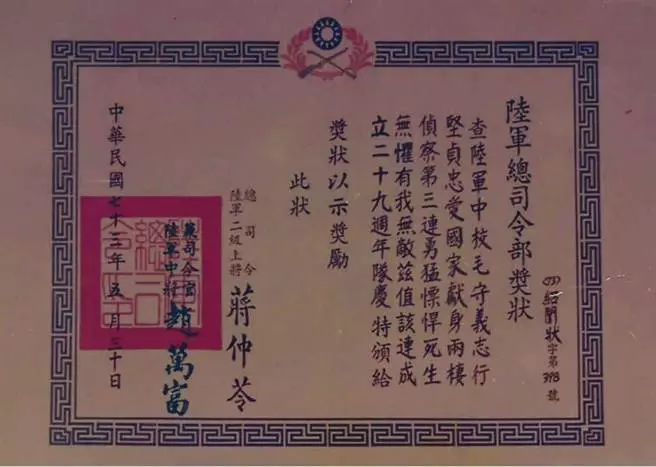 陸軍總司令部獎狀
(73)紹開狀字第398號
查陸軍中校毛守義志行
堅貞忠愛國家獻身兩棲
偵察第三連勇猛慓悍死生
無懼有我無敵茲值該連成
立二十九週年隊慶特頒給
獎狀以示獎勵
此狀
總司令
陸軍二級上將
蔣仲苓
兼司令官
陸軍中將
趙萬富
中華民國七十三年五月三十日